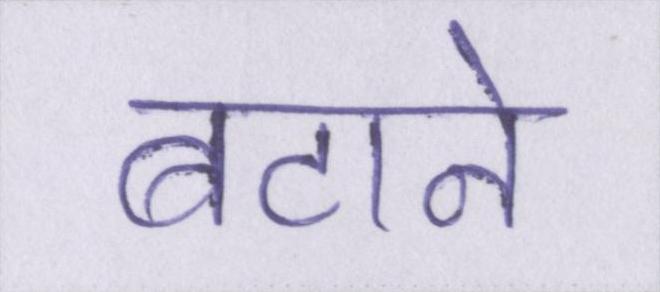 बटाने